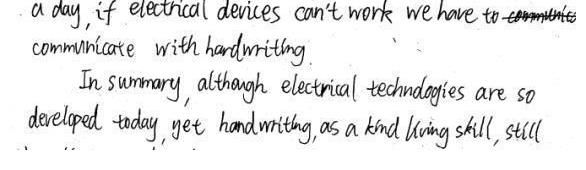 a day, if electrical devices can't work we have to
communicate with handwriting.
In summary, although electrical technologies are so
developed today, yet handwriting, as a kind living skill, still